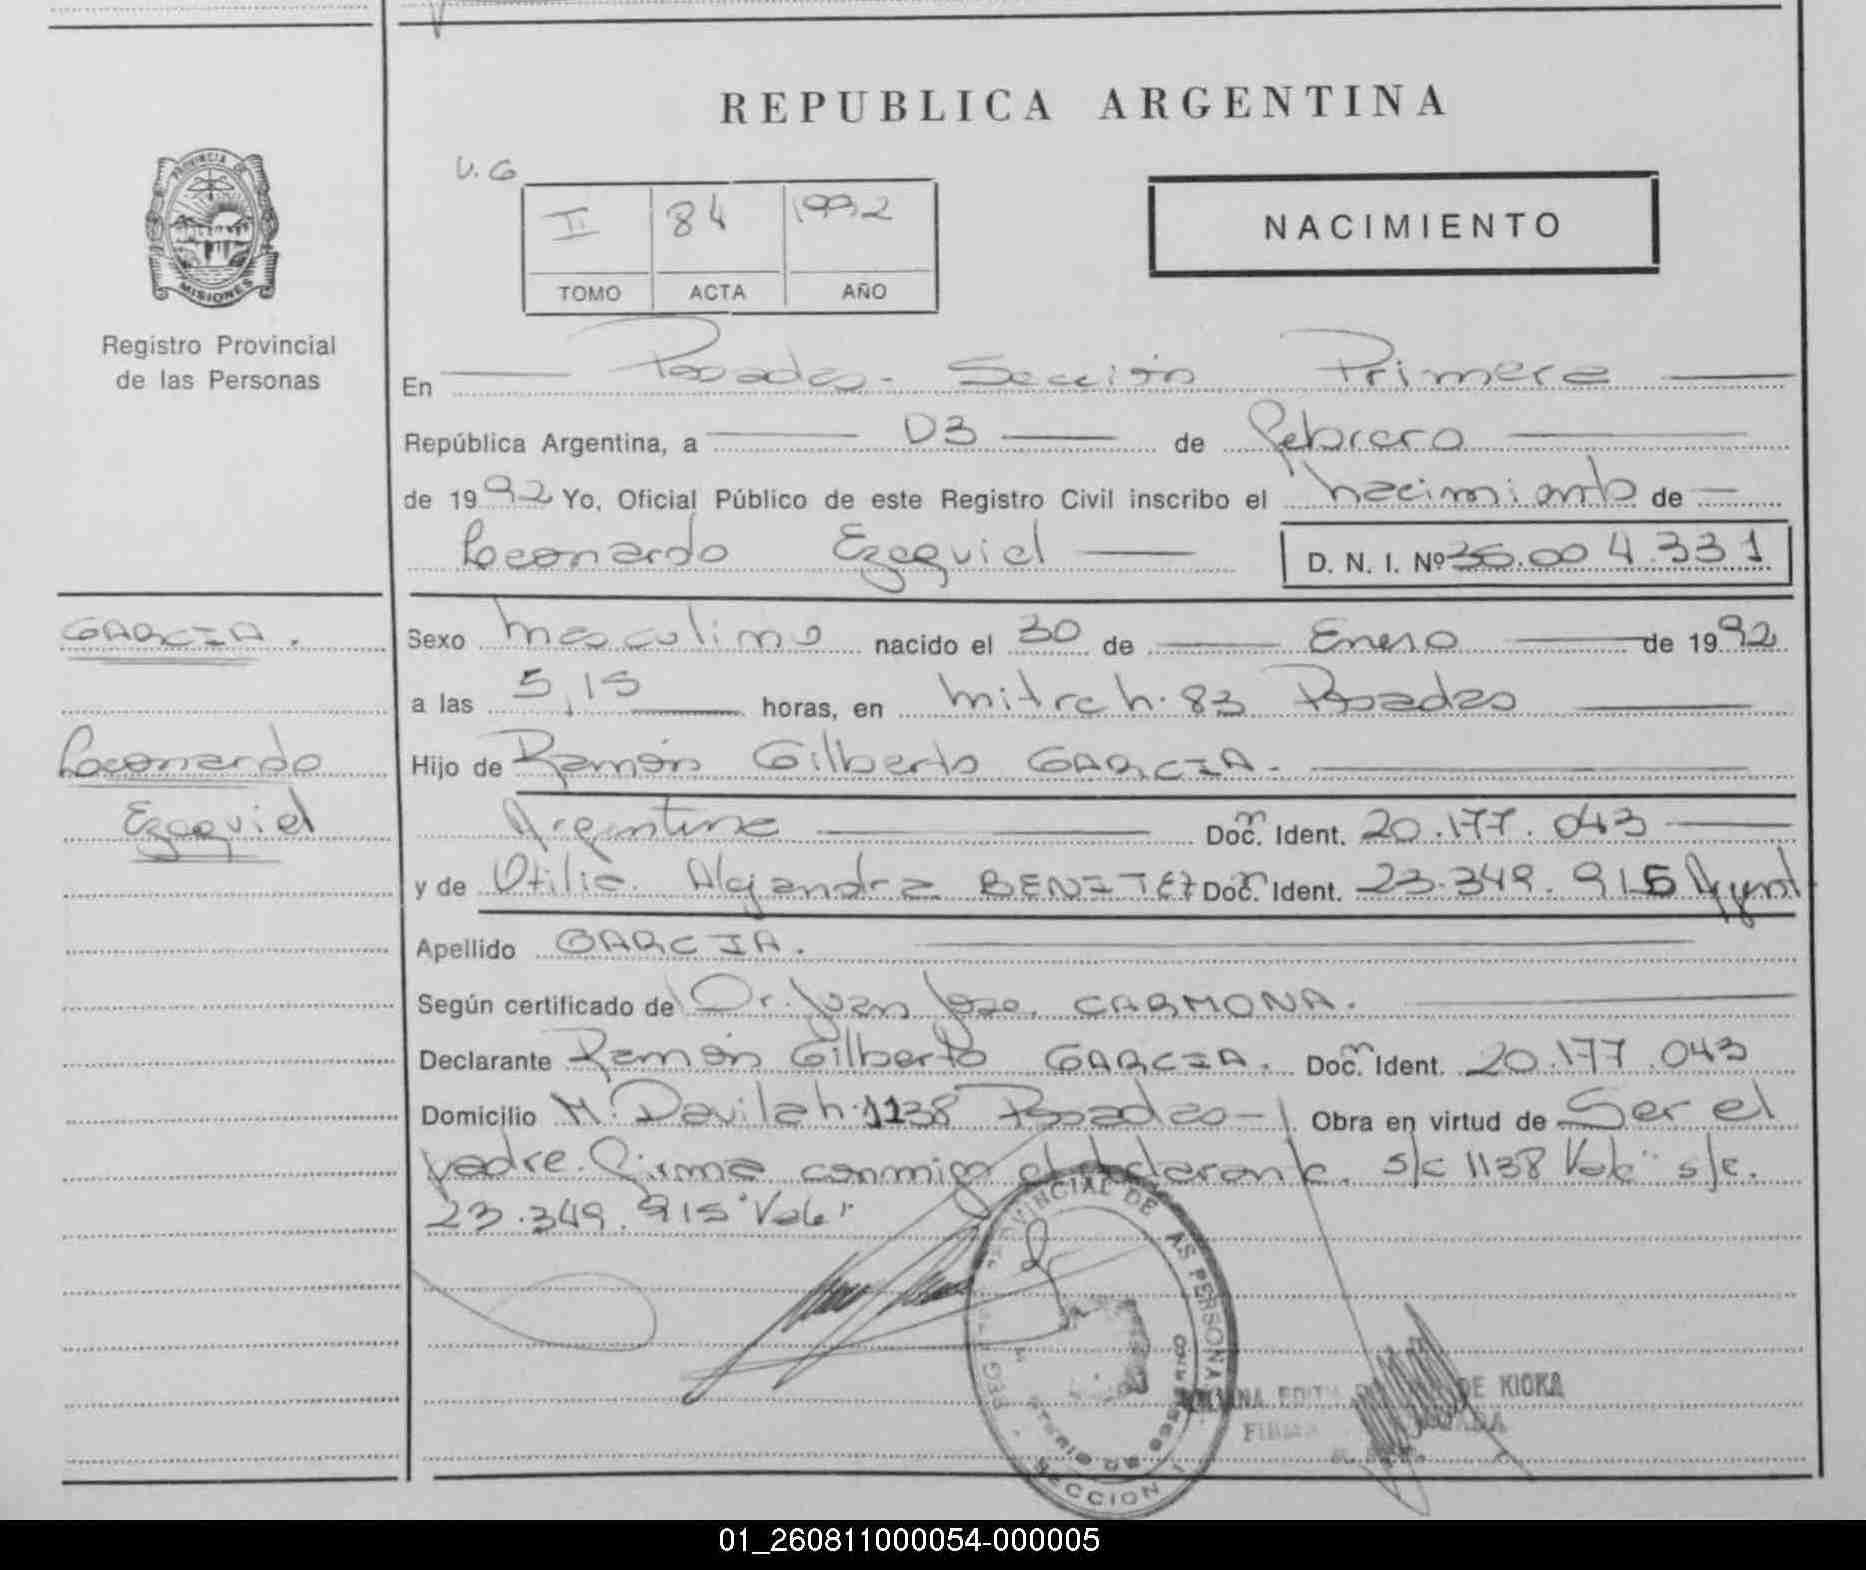 REPUBLICA ARGENTINA
U. G
II 84 1992
TOMO ACTA AÑO
NACIMIENTO
PROVINCIA DE
MISIONES
Registro Provincial
de las Personas
En Posadas - Sección Primera
República Argentina, a 03 de Febrero
de 1992 Yo, Oficial Público de este Registro Civil inscribo el nacimiento de
Leonardo Ezequiel D. N. I. Nº 36.004.331
GARCIA.
Leonardo
Ezequiel
Sexo masculino nacido el 30 de Enero de 1992
a las 5,15 horas, en Mitre h. 83 Posadas
Hijo de Ramón Gilberto GARCIA.
Argentina Doc. Ident. 20.177.043
y de Otilia Alejandra BENITEZ Doc. Ident. 23.349.915 Argent
Apellido GARCIA.
Según certificado de Dr. Juan Jose CARMONA.
Declarante Ramón Gilberto GARCIA. Doc. Ident. 20.177.043
Domicilio M. Davila h. 1138 Posadas - Obra en virtud de Ser el
padre. Firma conmigo el declarante. s/c 1138 "Vale" s/c.
23.349.915 "Vale"
PROVINCIAL DE LAS PERSONAS
SECCION 1
EDITH DE KIOKA
FIRMA
01_260811000054-000005